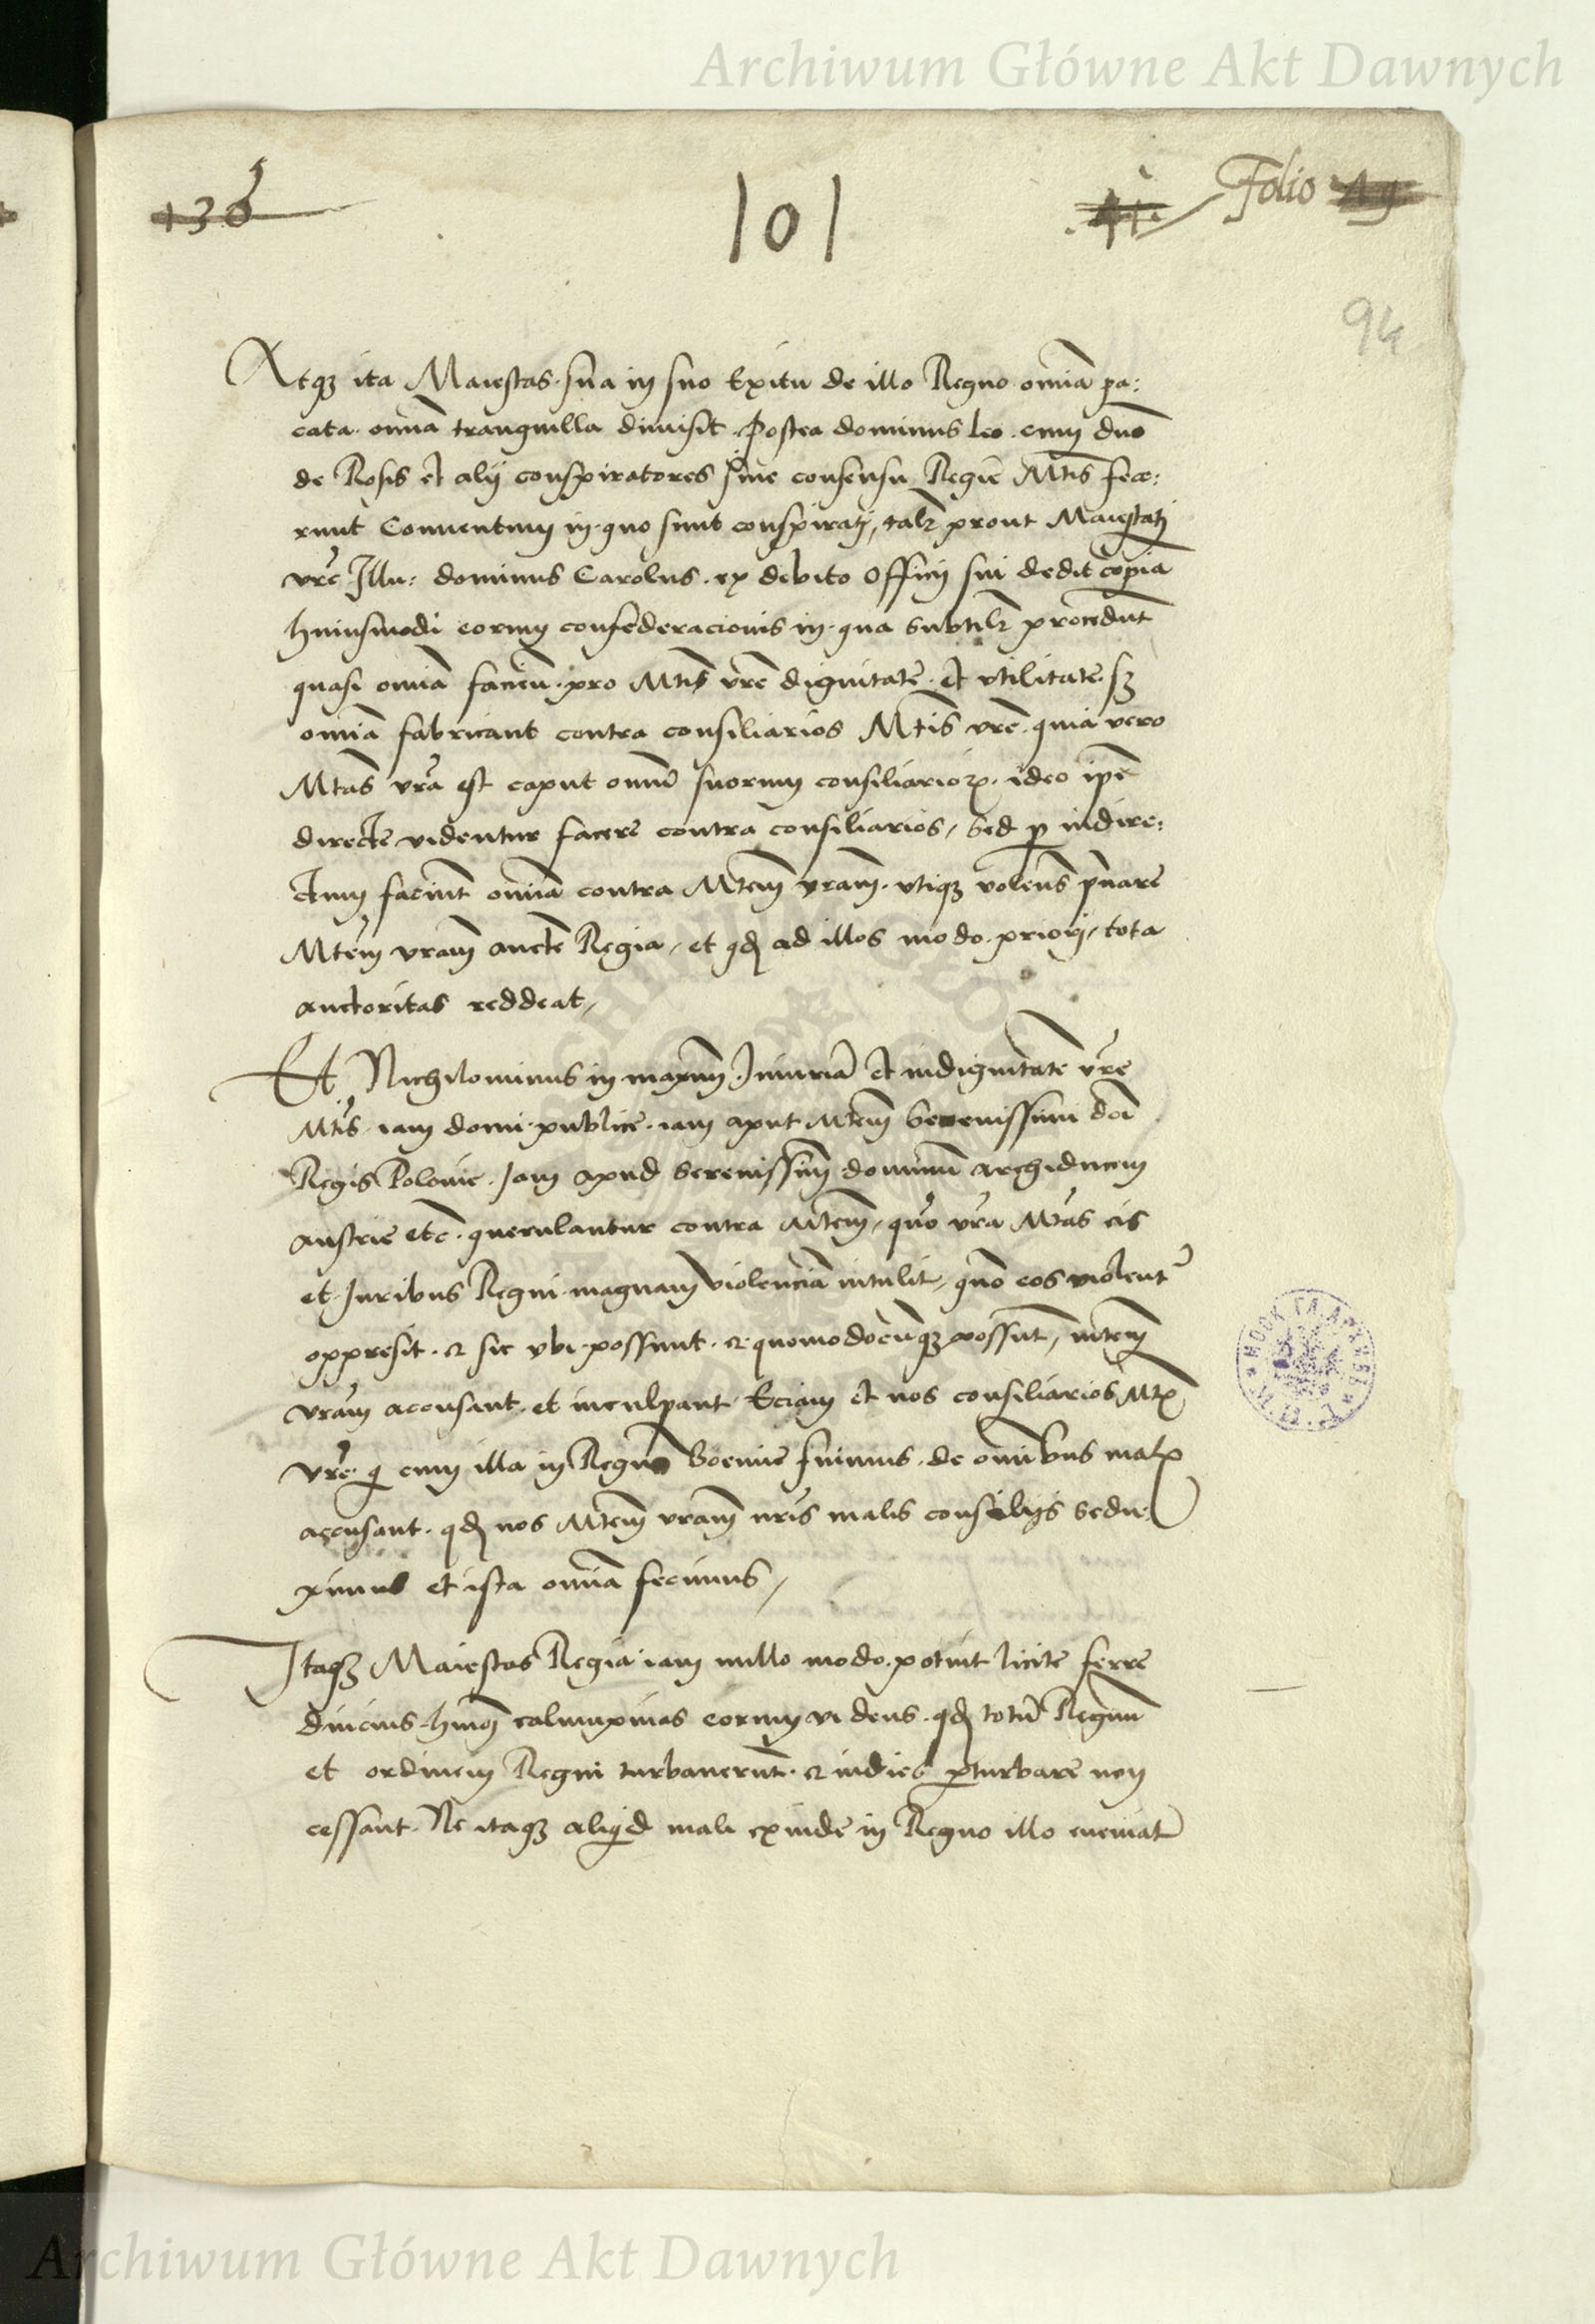 Archiwum Główne Akt Dawnych
136 101 Folio 19
94
Atq3 ita Maiestas sua in suo Exitu de illo Regno omia pa:
cata omia tranquilla dimisit. Postea dominus Leo cum dno
de Rosis et alij conspiratores sine consensu Regie Mtis fece:
runt Conuentum in quo sunt conspirati, talr prout Maiestati
vre Illu: dominus Carolus ex debito officij sui dedit copia
huiusmodi eorum confederacionis in qua subtilr procedunt
quasi omia facieñ pro Mtis vre dignitate et vtilitate s3
omia fabricant contra consiliarios Mtis vre quia vero
Mtas vra est caput omniū suorum consiliarior ideo ipe
directe videntur facere contra consiliarios, sed p indire:
ctum faciunt omia contra Mtem vram vtiq3 volens pnare
Mtem vram aucte Regia, et qd ad illos modo priori, tota
auctoritas reddeat,
Et Nichilominus in maxim Iniuria et indignitate vre
Mtis iam domi publice iam aput Mtem Serenissimi doi
Regis Polonie Iam apud Serenissim dominū archiducem
Austrie etc querulantur contra Mtem, quo vra Mtas eis
et Iuribus Regni magnam violencia intulit, quo eos violent
oppresit & sic vbi possunt & quomodocuq3 possunt, mtem
vram acusant et inculpant Eciam et nos consiliarios Mt
vre q cum illa in Regno Boemie fuimus de omibus mal
accusant qd nos Mtem vram nris malis consilijs sedu:
ximus et ista omia fecimus,
Itaq3 Maiestas Regia iam nullo modo potuit licite ferre
diucius hmoi calumpnias eorum videns qd totū Regnum
et ordinem Regni turbauerunt & indies pturbare non
cessant Ne itaq3 aliqd mali exinde in Regno illo eueniat
Archiwum Główne Akt Dawnych